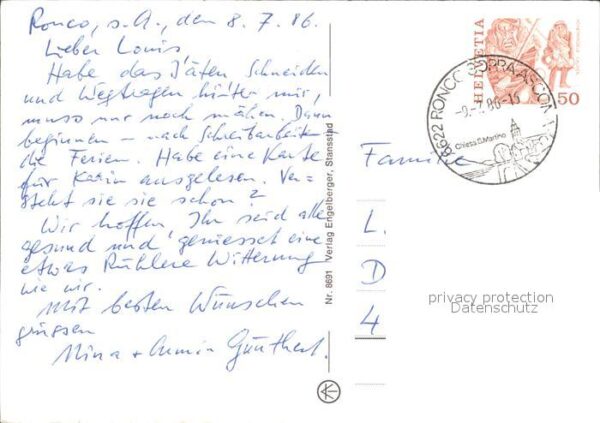 Ronco, s.A., den 8. 7. 86.
Lieber Louis,
Habe das Jäten, Schneiden
und Wegtragen hinter mir,
muss nur noch mähen. Dann
beginnen – nach Schreibarbeiten
die Ferien. Habe eine Karte
für Karin ausgelesen. Ver-
steht sie sie schon?
Wir hoffen, Ihr seid alle
gesund und geniesset eine
etwas kühlere Witterung
wie wir.
Mit besten Wünschen
grüssen
Nina + Armin Günthert.
Nr. 8691 Verlag Engelberger, Stansstad
HELVETIA
50
6622 RONCO SOPRA ASCONA
-9.-7.86-15
Chiesa S. Martino
Familie
L.
D
4
privacy protection
Datenschutz